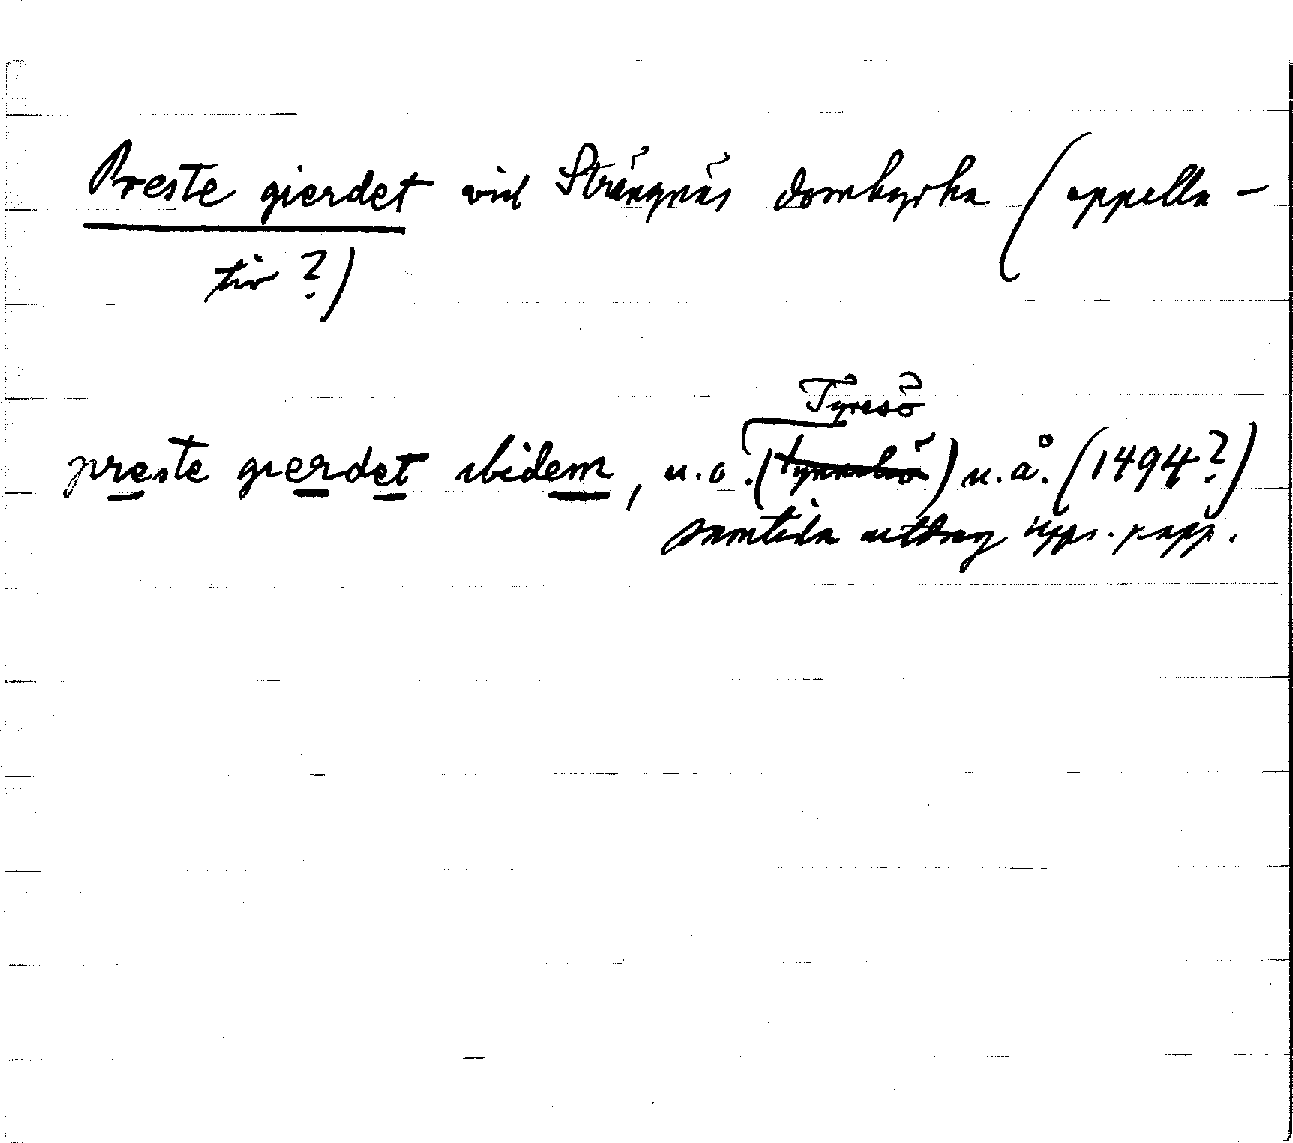 Preste gierdet vid Strängnäs domkyrka (appella-
tiv?)
Tyresö
preste gierdet ibidem, u.o. () u.å. (1494?)
samtida utdrag Upps. papp.